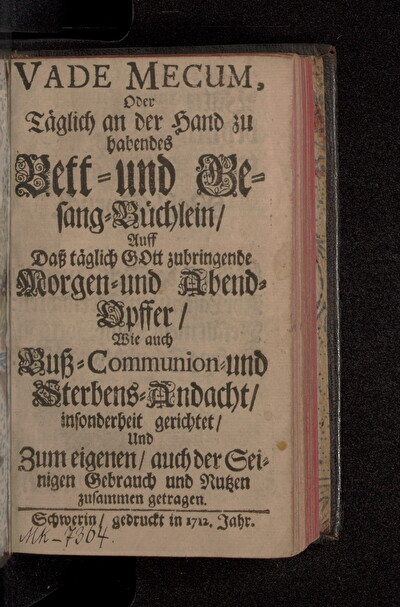 VADE MECUM,
Oder
Täglich an der Hand zu
habendes
Bett-und Ge-
sang-Büchlein/
Auff
Daß täglich GOtt zubringende
Morgen-und Abend-
Opffer/
Wie auch
Buß-Communion-und
Sterbens-Andacht/
insonderheit gerichtet/
Und
Zum eigenen/ auch der Sei-
nigen Gebrauch und Nutzen
zusammen getragen.
Schwerin/ gedruckt in 1712. Jahr.
Mk-7364.